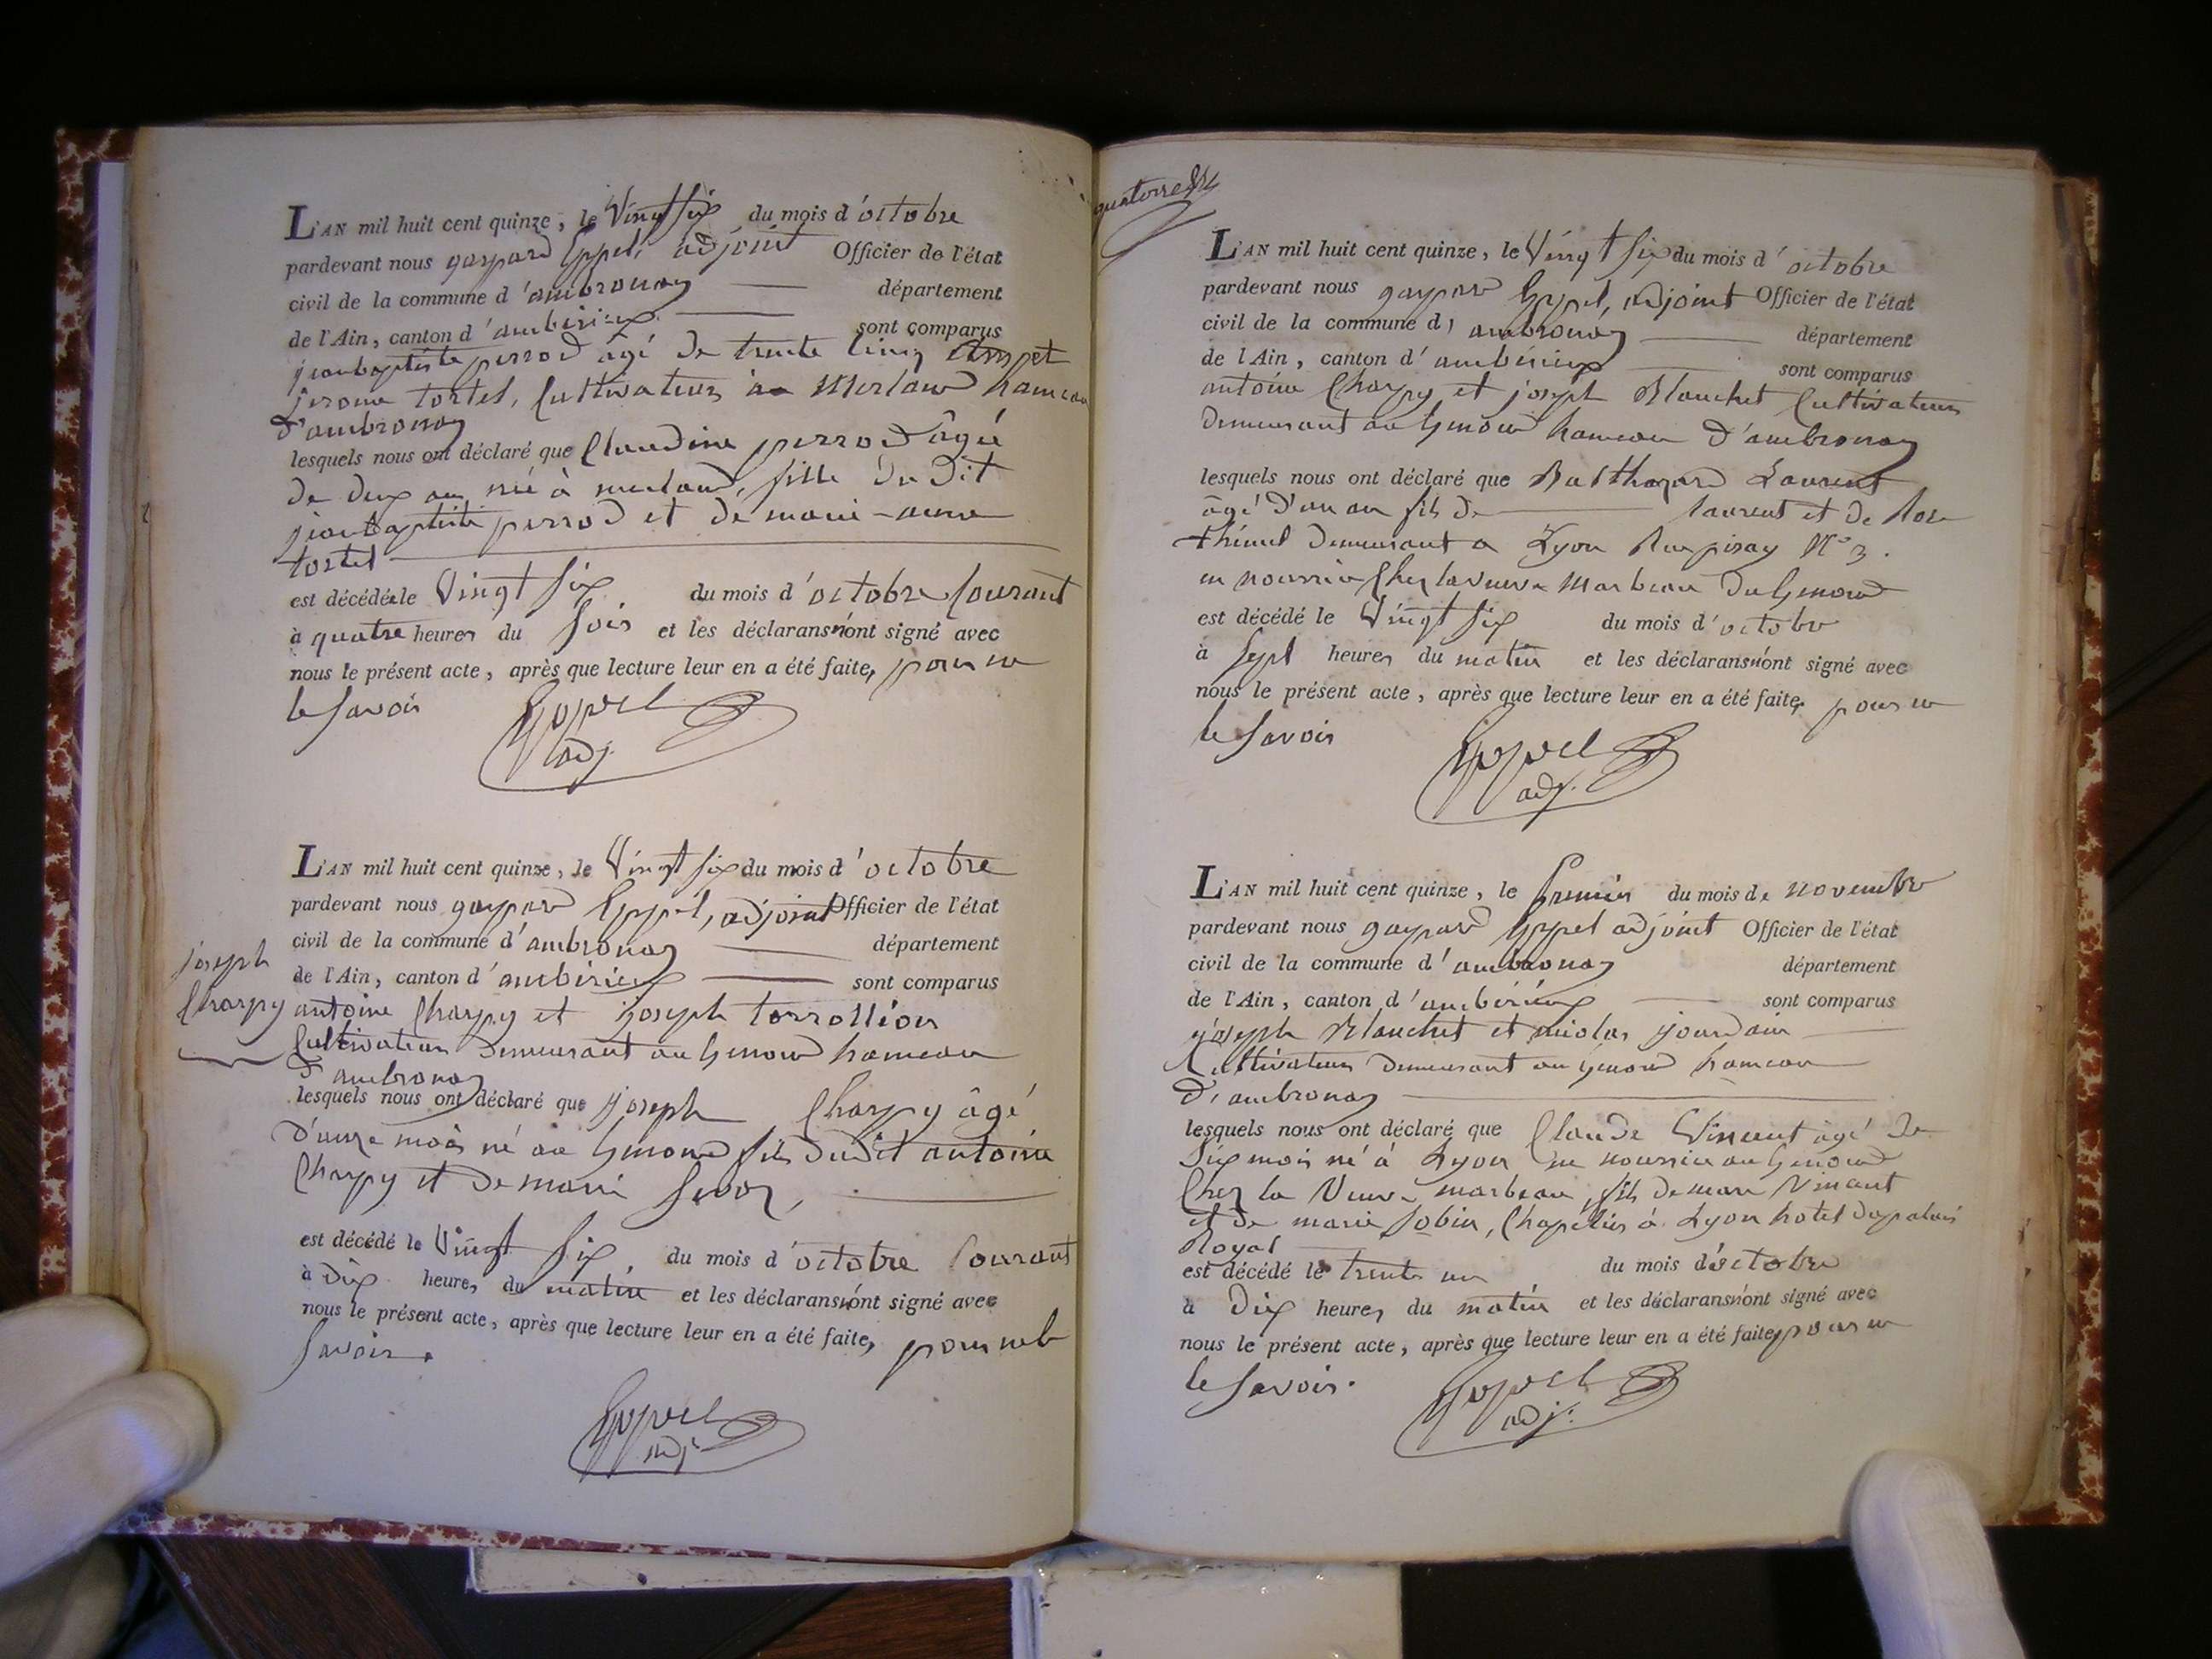 L'AN mil huit cent quinze, le Vingt six du mois d'octobre
pardevant nous gaspard Eppel, adjoint Officier de l'état
civil de la commune d'ambronay département
de l'Ain, canton d'ambérieux sont comparus
jeanbaptiste perrod âgé de trente cinq ans et
jerome tortel, Cultivateurs à merland hameau
d'ambronay
lesquels nous ont déclaré que Claudine perrod âgée
de deux ans née à merland, fille du dit
jeanbaptiste perrod et de marie-anne
tortel
est décédée le Vingt six du mois d'octobre Courant
à quatre heures du soir et les déclarans n'ont signé avec
nous le présent acte, après que lecture leur en a été faite, pour ne
le savoir
Eppel
adj.
L'AN mil huit cent quinze, le Vingt six du mois d'octobre
pardevant nous gaspard Eppel, adjoint Officier de l'état
civil de la commune d'ambronay département
de l'Ain, canton d'ambérieux sont comparus
joseph
Charpy
antoine Charpy et joseph torrollion
Cultivateurs demeurant au Genoud hameau
d'ambronay
lesquels nous ont déclaré que joseph Charpy âgé
d'onze mois né au Genoud fils dudit antoine
Charpy et de marie
est décédé le Vingt six du mois d'octobre Courant
à dix heures du matin et les déclarans n'ont signé avec
nous le présent acte, après que lecture leur en a été faite, pour ne le
savoir.
Eppel
adj.
quatorze
L'AN mil huit cent quinze, le Vingt six du mois d'octobre
pardevant nous gaspard Eppel, adjoint Officier de l'état
civil de la commune d'ambronay département
de l'Ain, canton d'ambérieux sont comparus
antoine Charpy et joseph Blanchet Cultivateurs
demeurant au Genoud hameau d'ambronay
lesquels nous ont déclaré que Balthazard Laurent
âgé d'un an fils de laurent et de Rose
thimel demeurant a Lyon Rue pisay N° 3.
en nourrice Chez la veuve Marbeau du Genoud
est décédé le Vingt six du mois d'octobre
à sept heures du matin et les déclarans n'ont signé avec
nous le présent acte, après que lecture leur en a été faite, pour ne
le savoir
Eppel
adj.
L'AN mil huit cent quinze, le premier du mois de novembre
pardevant nous gaspard Eppel adjoint Officier de l'état
civil de la commune d'ambronay département
de l'Ain, canton d'ambérieux sont comparus
joseph Blanchet et nicolas jourdain
Cultivateurs demeurant au Genoud hameau
d'ambronay
lesquels nous ont déclaré que Claude Vincent âgé de
dix mois né à Lyon en nourrice au Genoud
Chez la Veuve marbeau, fils de marc Vincent
et de marie Jobin, Chapelier à Lyon hotel du palais
Royal
est décédé le trente un du mois d'octobre
à dix heures du matin et les déclarans n'ont signé avec
nous le présent acte, après que lecture leur en a été faite, pour ne
le savoir.
Eppel
adj.